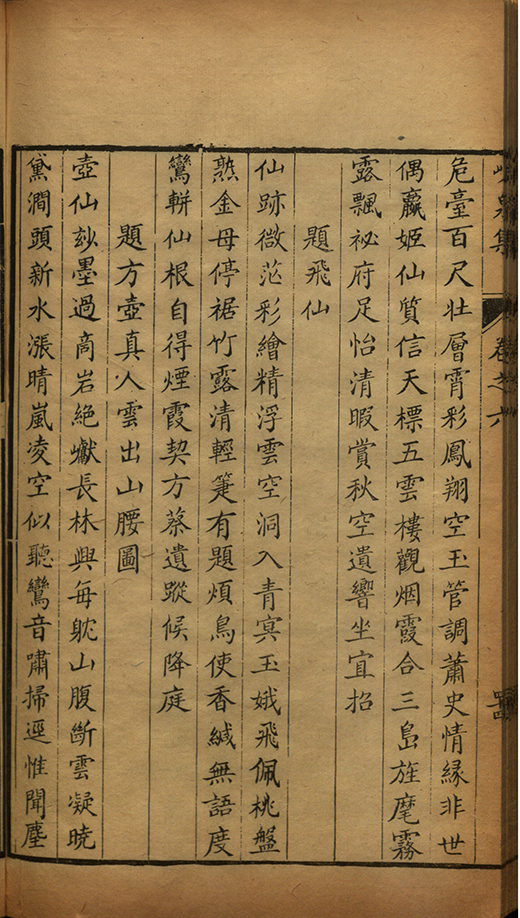 峴泉集
卷之六
危臺百尺壯層霄彩鳳翔空玉管調蕭史情緣非世
偶嬴姬仙質信天標五雲樓觀烟霞合三島旌麾霧
露飄祕府足怡清暇賞秋空遺響坐宜招
題飛仙
仙跡微茫彩繪精浮雲空洞入青冥玉娥飛佩桃盤
熟金母停裾竹露清輕箑有題煩鳥使香緘無語度
鸞軿仙根自得煙霞契方蔡遺蹤候降庭
題方壺真人雲出山腰圖
壺仙玅墨過商岩絶巘長林興每躭山腹斷雲凝曉
黛澗頭新水漲晴嵐凌空似聽鸞音嘯掃逕惟聞麈